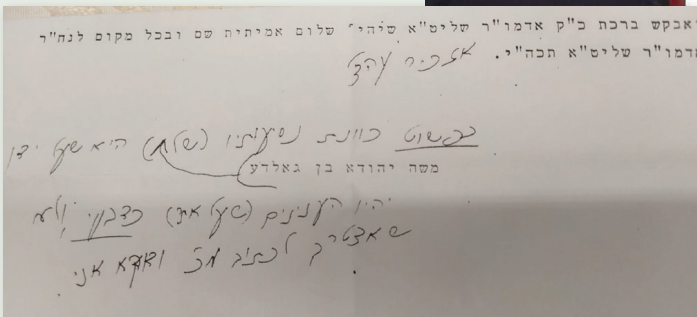 ואבקש ברכת כ"ק אדמו"ר שליט"א שיהי' שלום אמיתית שם ובכל מקום לנח"ר
אדמו"ר שליט"א תכה"י.
אזכיר עהצ
כפשוט כוונת נסיעותיו (של) היא שעי ידו
משה יהודא בן גאלדע
יהיו הענינים (שעל) כדבעי
שאצטרך לכתוב אני